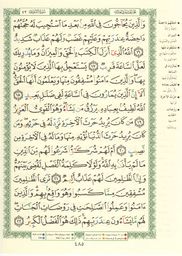 وَالَّذِينَ يُحَاجُّونَ فِي اللَّهِ مِنۢ بَعْدِ مَا اسْتُجِيبَ لَهُ حُجَّتُهُمْ
دَاحِضَةٌ عِندَ رَبِّهِمْ وَعَلَيْهِمْ غَضَبٌ وَلَهُمْ عَذَابٌ شَدِيدٌ ١٦
اللَّهُ الَّذِي أَنزَلَ الْكِتَابَ بِالْحَقِّ وَالْمِيزَانَ وَمَا يُدْرِيكَ
لَعَلَّ السَّاعَةَ قَرِيبٌ ١٧ يَسْتَعْجِلُ بِهَا الَّذِينَ لَا يُؤْمِنُونَ
بِهَا وَالَّذِينَ آمَنُوا مُشْفِقُونَ مِنْهَا وَيَعْلَمُونَ أَنَّهَا الْحَقُّ
أَلَا إِنَّ الَّذِينَ يُمَارُونَ فِي السَّاعَةِ لَفِي ضَلَالٍ بَعِيدٍ
١٨ اللَّهُ لَطِيفٌ بِعِبَادِهِ يَرْزُقُ مَن يَشَاءُ وَهُوَ الْقَوِيُّ الْعَزِيزُ
١٩ مَن كَانَ يُرِيدُ حَرْثَ الْآخِرَةِ نَزِدْ لَهُ فِي حَرْثِهِ وَمَن
كَانَ يُرِيدُ حَرْثَ الدُّنْيَا نُؤْتِهِ مِنْهَا وَمَا لَهُ فِي الْآخِرَةِ مِن
نَّصِيبٍ ٢٠ أَمْ لَهُمْ شُرَكَاءُ شَرَعُوا لَهُم مِّنَ الدِّينِ
مَا لَمْ يَأْذَنۢ بِهِ اللَّهُ وَلَوْلَا كَلِمَةُ الْفَصْلِ لَقُضِيَ بَيْنَهُمْ
وَإِنَّ الظَّالِمِينَ لَهُمْ عَذَابٌ أَلِيمٌ ٢١ تَرَى الظَّالِمِينَ
مُشْفِقِينَ مِمَّا كَسَبُوا وَهُوَ وَاقِعٌۢ بِهِمْ وَالَّذِينَ
آمَنُوا وَعَمِلُوا الصَّالِحَاتِ فِي رَوْضَاتِ الْجَنَّاتِ
لَهُم مَّا يَشَاءُونَ عِندَ رَبِّهِمْ ذَٰلِكَ هُوَ الْفَضْلُ الْكَبِيرُ ٢٢
٤٨٥